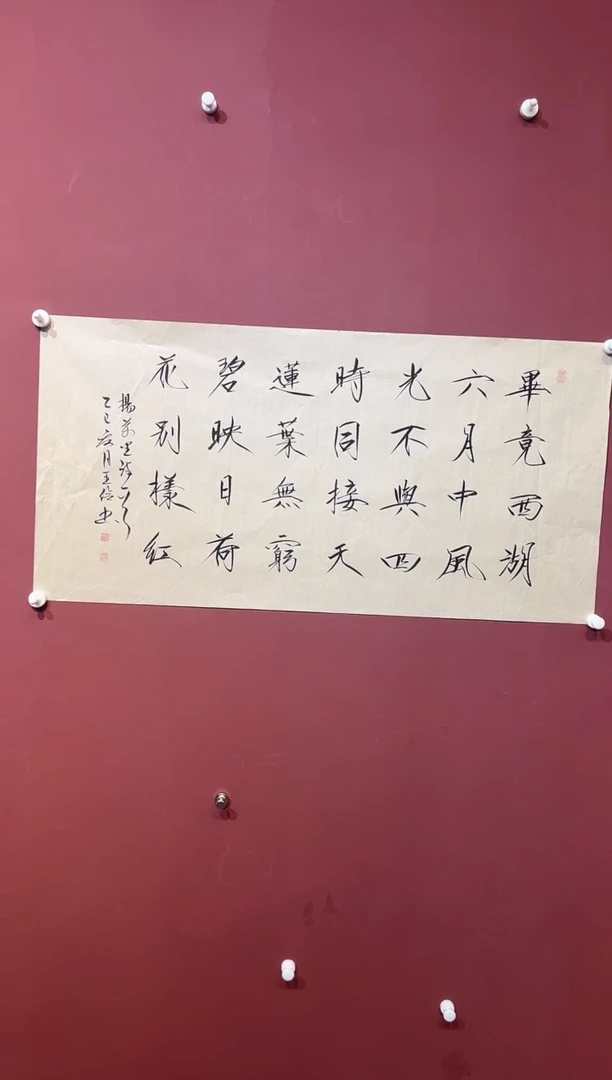 畢竟西湖
六月中風
光不與四
時同接天
蓮葉無窮
碧映日荷
花別樣紅
楊萬里詩一首
乙巳夏月王